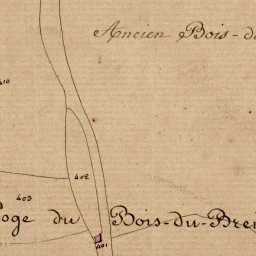 Ancien Bois-d
410
402
403
oge du Bois-du-Bre
401